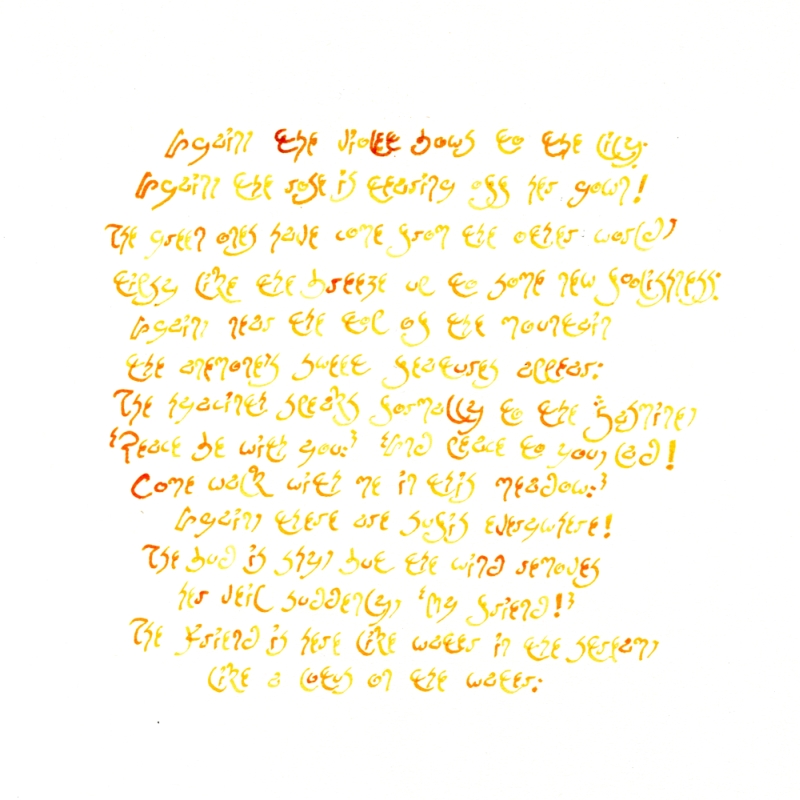 Again the violet bows to the lily.
Again the rose is tearing off her gown!
The green ones have come from the other world,
tipsy like the breeze up to some new foolishness.
Again, near the top of the mountain
the anemone's sweet features appear.
The hyacinth speaks formally to the jasmine,
'Peace be with you.' 'And peace to you, lad!
Come walk with me in this meadow.'
Again, there are sufis everywhere!
The bud is shy, but the wind removes
her veil suddenly, 'My friend!'
The Friend is here like water in the stream,
like a lotus on the water.